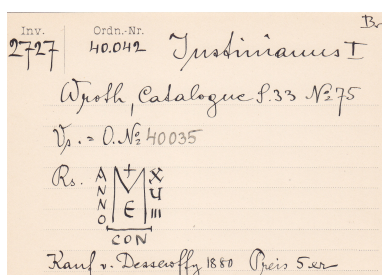 Br
Inv. Ordn.-Nr.
2727 40.042 Justinianus I
Wroth, Catalogue S.33 No 75
Vs. = O.No 40035
Rs. ANNO + M E XVIII
CON
Kauf v. Dessewffy 1880 Preis 5 er